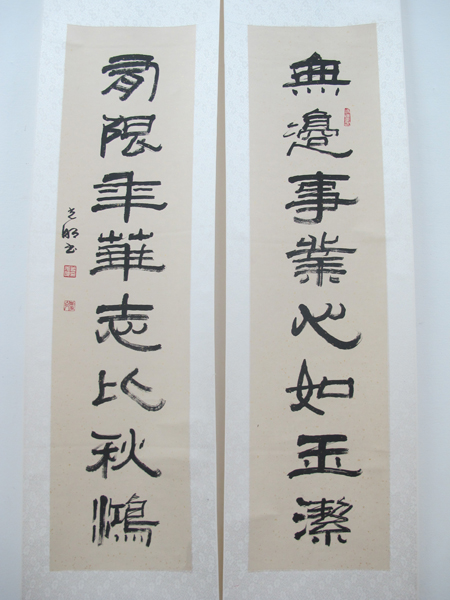 無邊事業心如玉潔
有限年華志比秋鴻
光明书